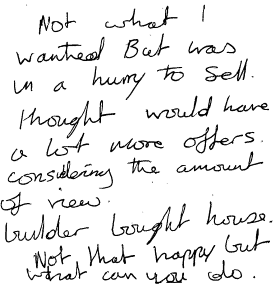 Not what I
wanted But was
in a hurry to sell.
thought would have
a lot more offers.
considering the amount
of view.
builder bought house.
Not that happy but
what can you do.